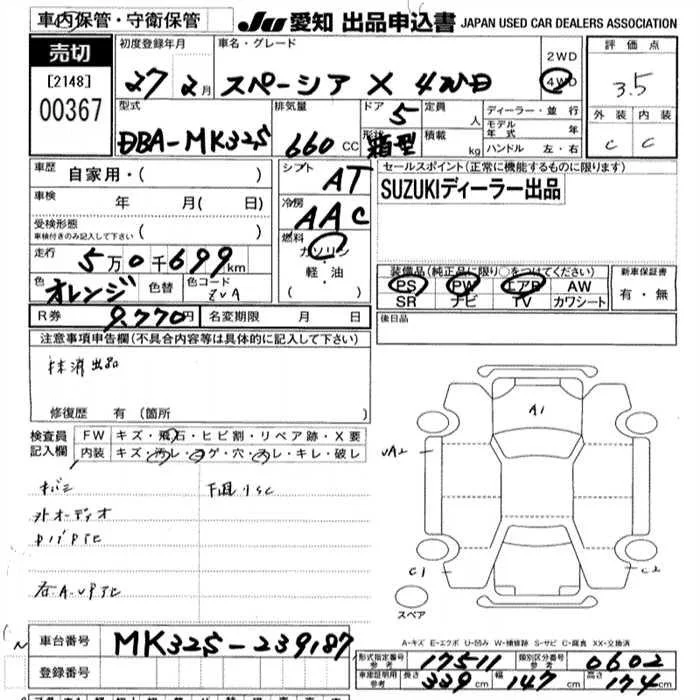 車内保管・守衛保管 JU 愛知 出品申込書 JAPAN USED CAR DEALERS ASSOCIATION
売切
[2148]
00367
初度登録年月 車名・グレード
27 2月 スペーシア X 4WD
2WD
4WD
評価点
3.5
外装 内装
C C
型式 排気量 ドア 定員
DBA-MK32S 660CC 5 人
形状 積載
箱型 kg
ディーラー・並行
モデル年式 年
ハンドル 左・右
車歴 自家用・( )
車検 年 月( 日)
受検形態
車検付きのみ記入して下さい ( )
走行 5万0千699km
色 オレンジ 色替 色コード
R券 9,770円 名変期限 月 日
シフト AT
冷房 AAC
燃料
ガソリン
軽・油
( )
セールスポイント(正常に機能するものに限ります)
SUZUKIディーラー出品
装備品(純正品に限り○をつけてください)
PS PW エアB AW
SR ナビ TV カワシート
新車保証書
有・無
後日品
注意事項申告欄(不具合内容等は具体的に記入して下さい)
抹消出品
修復歴 有(箇所
検査員記入欄
FW キズ・飛石・ヒビ割・リペア跡・X要
内装 キズ・汚レ・コゲ・穴・スレ・キレ・破レ
外オーディオ
A1
C1
C2
スペア
A-キズ E-エクボ U-凹み W-補修跡 S-サビ C-腐食 XX-交換済
車台番号 MK32S-239187
登録番号
形式指定番号 参考 17511 類別区分番号 参考 0602
車庫証明用 参考 長さ 339cm 幅 147cm 高さ 174cm